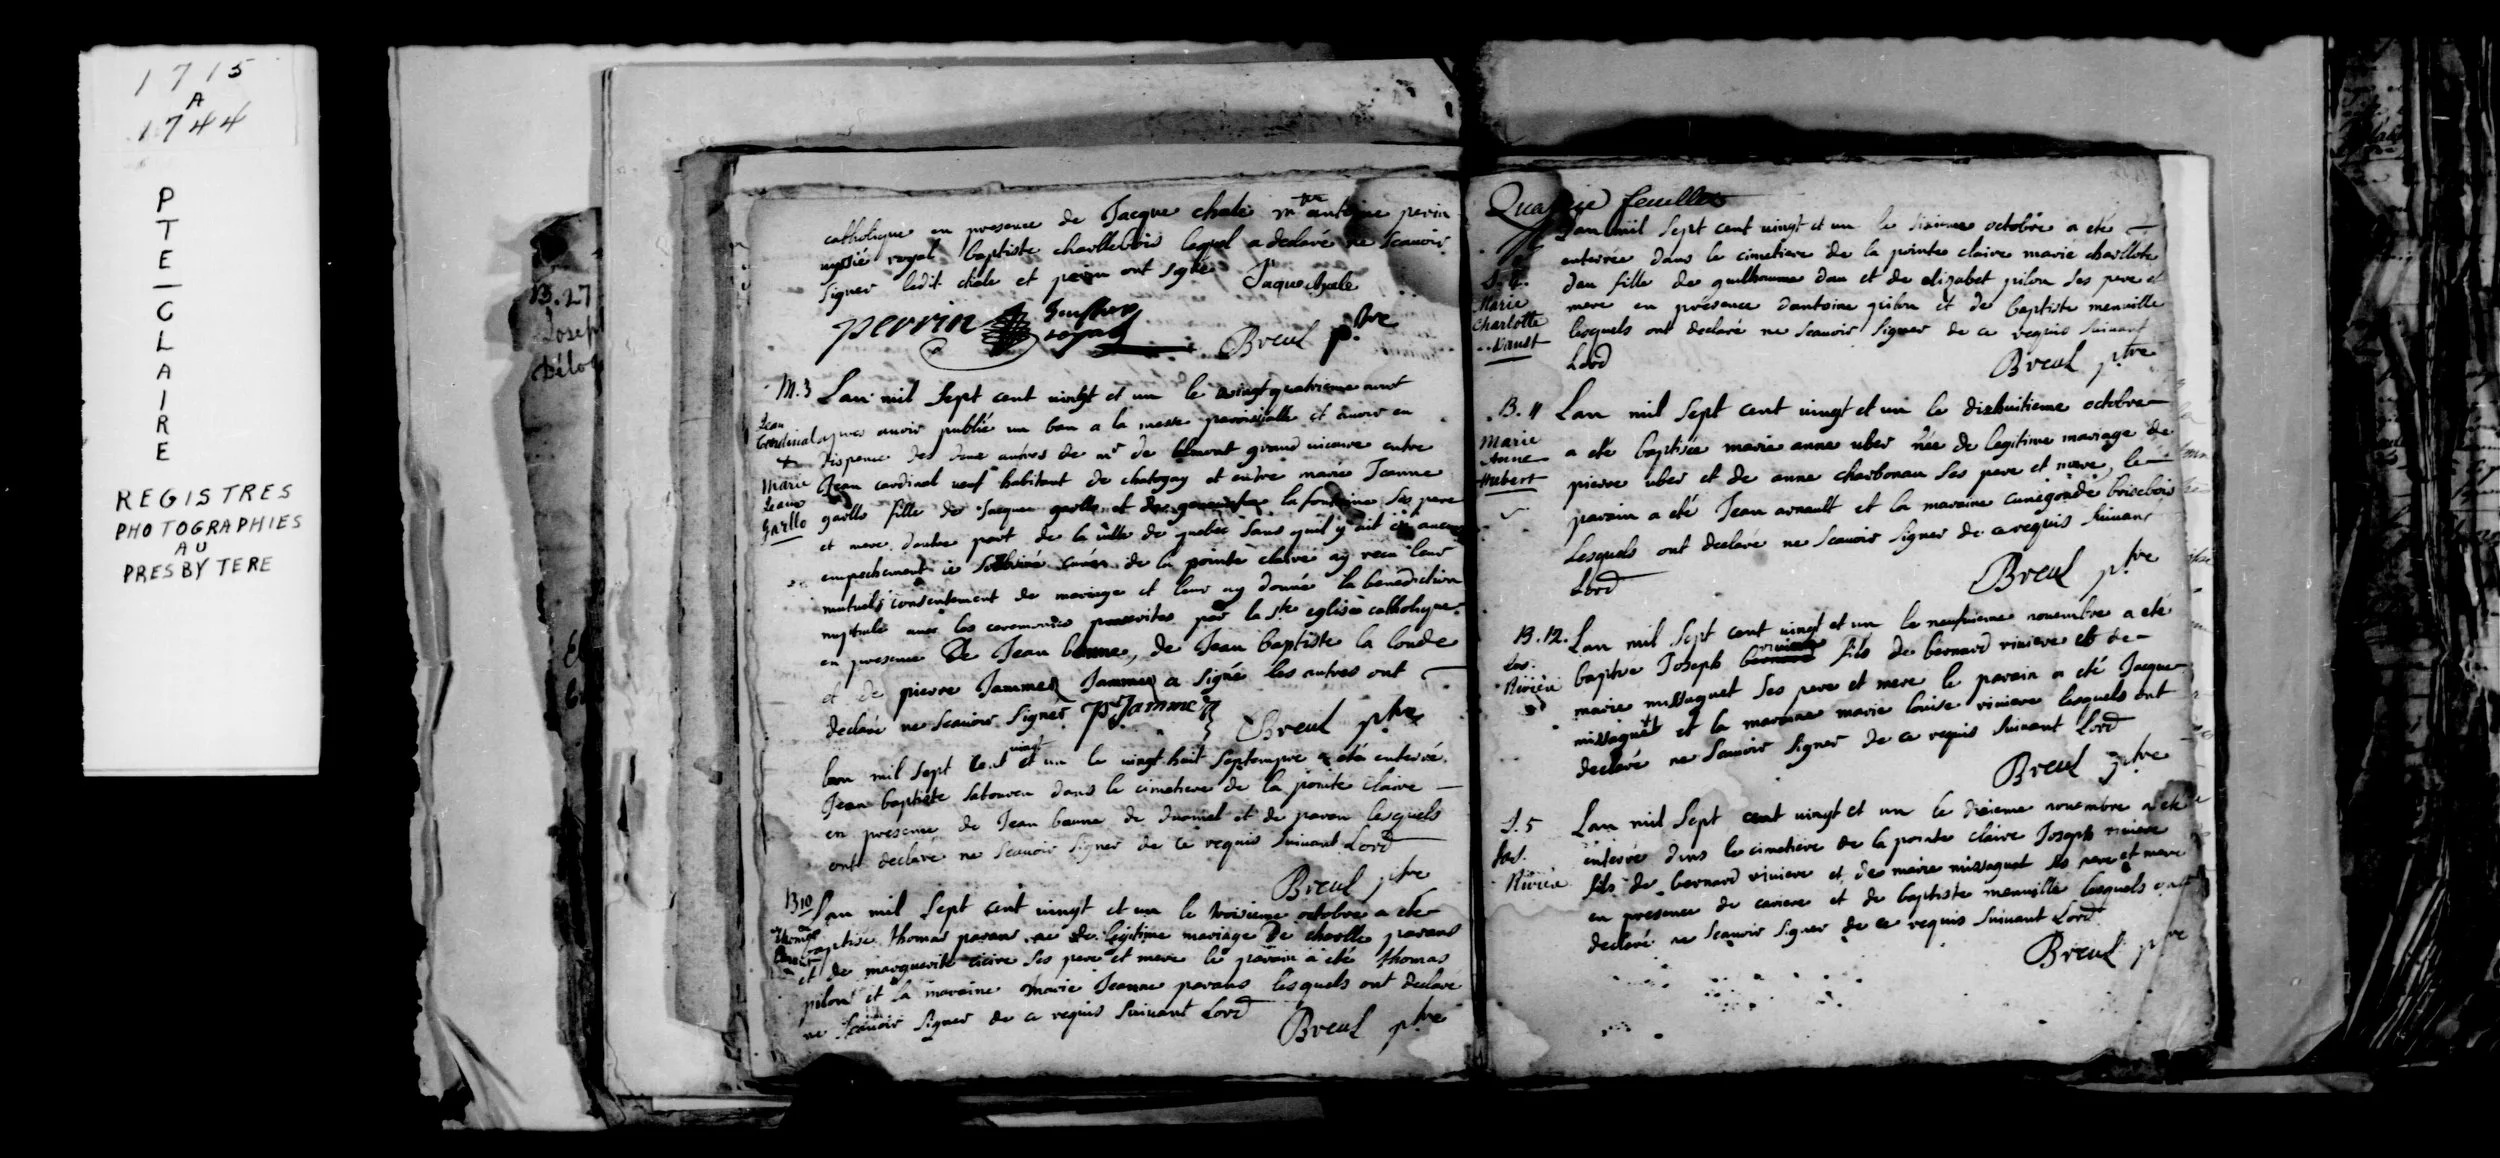 1715
A
1744
PTE-CLAIRE
REGISTRES
PHOTOGRAPHIES
AU
PRESBYTERE
B.27
Joseph
catholique en presence de Jacque chale mtre antoine perin
royal baptiste charlebois lequel a declaré ne scauoir
signer ledit chale et perin ont signé Jaque chale
perrin
royal
Breul ptre
M.3 Lan mil sept cent uingt et un le uingt quatrieme aout
Jean
Cardinal
+
Marie
Jeane
Garllo
apres auoir publié un ban a la messe parroissialle et auoir eu
dispense des deux autres de mr de belmont grand uicaire entre
Jean cardinal ueuf habitant de chatogay et entre marie Jeanne
garllo fille de Jacques garllo et de la fontaine ses pere
et mere dautre part de la uille de quebec sans quil y ait eu aucun
empechement ie soussiné curé de la pointe claire ay receu leur
mutuels consentement de mariage et leur ay donné la benediction
nuptiale auec les ceremonies prescrites par la ste eglise catholique
en presence de Jean baune, de Jean baptiste la londe
et de pierre Jammes Jammes a signé les autres ont
declaré ne scauoir signer P. Jamme Breul ptre
lan mil sept cent uingt et un le uingt huit septempre a eté enterré
Jean baptiste dans le cimetiere de la pointe claire
en presence de Jean baune de et de paran lesquels
ont declaré ne scauoir signer de ce requis suiuant Lord
Breul ptre
B10
Thomas
Lan mil sept cent uingt et un le troisieme octobre a eté
baptisé thomas parans né de legitime mariage de charlle parans
et de marguerite ses pere et mere le parain a eté thomas
pilon et la maraine marie Jeanne parans lesquels ont declaré
ne scauoir signer de ce requis suiuant Lord
Breul ptre
feuillet
Lan mil sept cent uingt et un le sixieme octobre a eté
S.4.
Marie
Charlotte
Daust
enterrée dans le cimetiere de la pointe claire marie charllote
dau fille de guilhaume dau et de elizabet pilon ses pere et
mere en présence dantoine pilon et de baptiste menuille
lesquels ont declaré ne scauoir signer de ce requis suiuant
Lord
Breul ptre
B.11
Marie
Anne
Hubert
Lan mil sept cent uingt et un le dixhuitieme octobre
a eté baptisée marie anne uber née de legitime mariage de
pierre uber et de anne charbonau ses pere et mere, le
parain a eté Jean arnault et la maraine cunegonde brisebois
Lesquels ont declaré ne scauoir signer de ce requis suiuant
Lord
Breul ptre
B.12.
Jos.
Rivièr
Lan mil sept cent uingt et un le neufuieme nouembre a eté
baptise Joseph riuiere fils de bernard riuiere et de
marie missaguet ses pere et mere le parain a eté Jacque
missaguet et la maraine marie louise riuiere lesquels ont
declaré ne scauoir signer de ce requis suiuant Lord
Breul ptre
S.5
Jos.
Rivièr
Lan mil sept cent uingt et un le dixieme nouembre a eté
enterré dans le cimetiere de la pointe claire Joseph riuiere
fils de bernard riuiere et de marie missaguet ses pere et mere
en presence de cariere et de baptiste menuille lesquels ont
declaré ne scauoir signer de ce requis suiuant Lord
Breul ptre